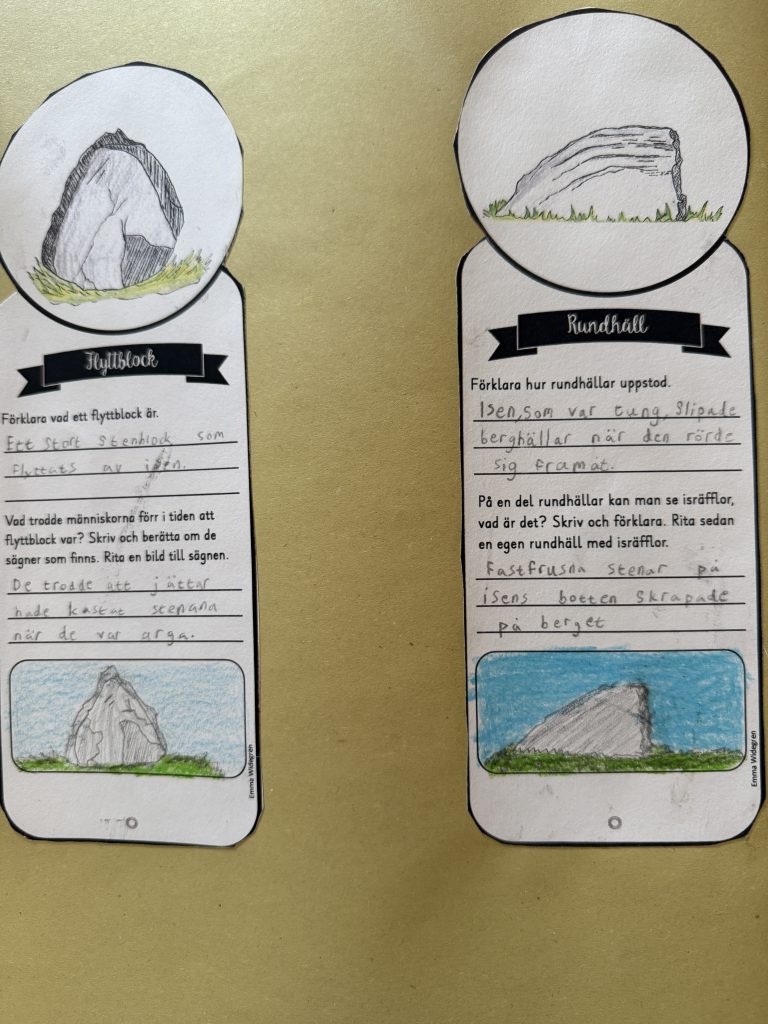 Flyttblock
Förklara vad ett flyttblock är.
Ett stort stenblock som
flyttats av isen.
Vad trodde människorna förr i tiden att
flyttblock var? Skriv och berätta om de
sägner som finns. Rita en bild till sägnen.
De trodde att jättar
hade kastat stenana
när de var arga.
Emma Widegren
Rundhäll
Förklara hur rundhällar uppstod.
Isen, som var tung, slipade
berghällar när den rörde
sig framåt.
På en del rundhällar kan man se isräfflor,
vad är det? Skriv och förklara. Rita sedan
en egen rundhäll med isräfflor.
Fastfrusna stenar på
isens botten skrapade
på berget
Emma Widegren